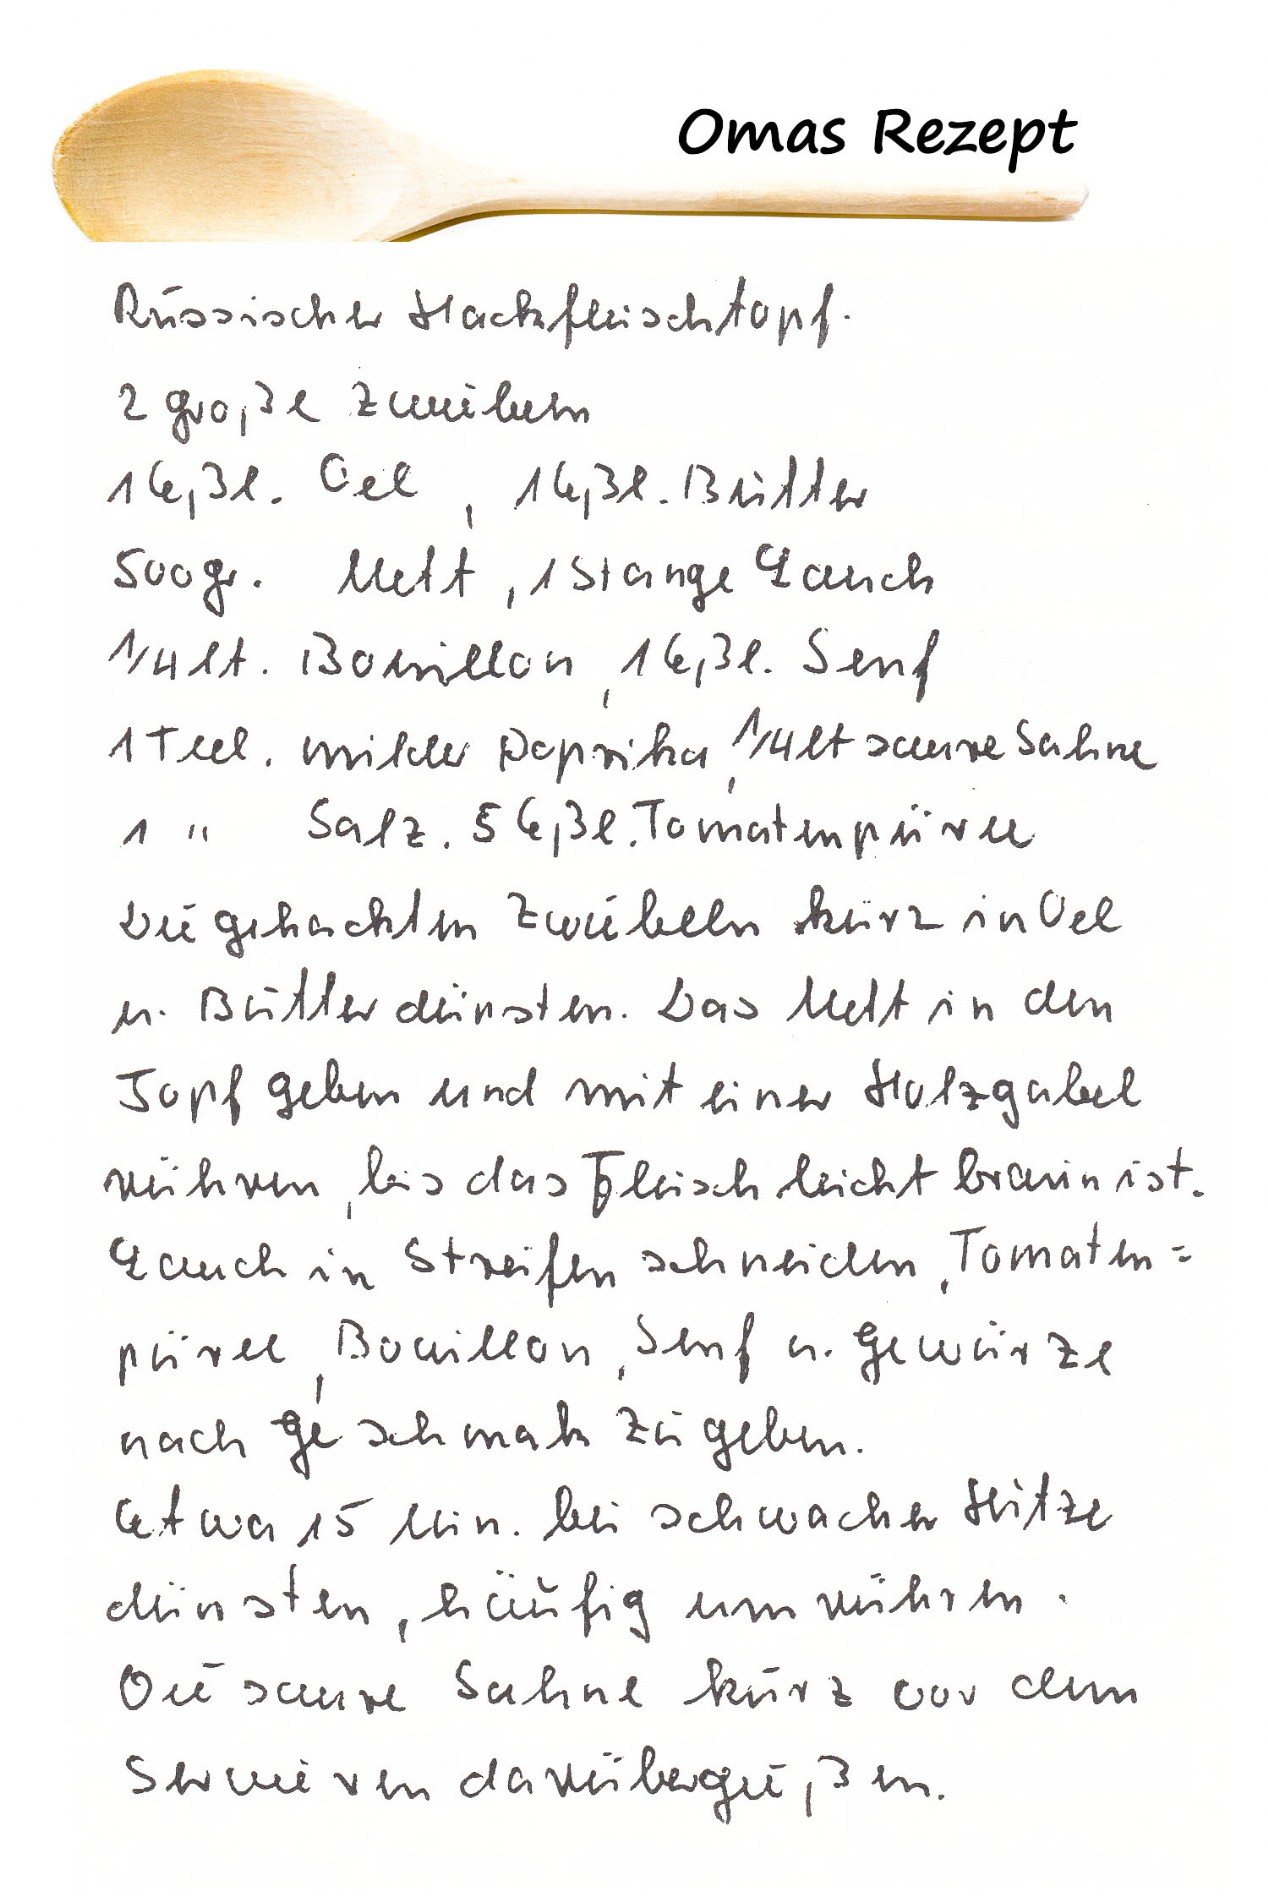 Omas Rezept
Russischer Hackfleischtopf.
2 große Zwiebeln
1 Eßl. Oel, 1 Eßl. Butter
500 gr. Mett, 1 Stange Lauch
1/4 lt. Bouillon, 1 Eßl. Senf
1 Teel. milder Paprika, 1/4 lt saure Sahne
1 " Salz. 5 Eßl. Tomatenpüree
Die gehackten Zwiebeln kurz in Oel
u. Butter dünsten. Das Mett in den
Topf geben und mit einer Holzgabel
rühren, bis das Fleisch leicht braun ist.
Lauch in Streifen schneiden, Tomaten=
püree, Bouillon, Senf u. Gewürze
nach Geschmak zugeben.
Etwa 15 Min. bei schwacher Hitze
dünsten, häufig umrühren.
Die saure Sahne kurz vor dem
Servieren darübergießen.